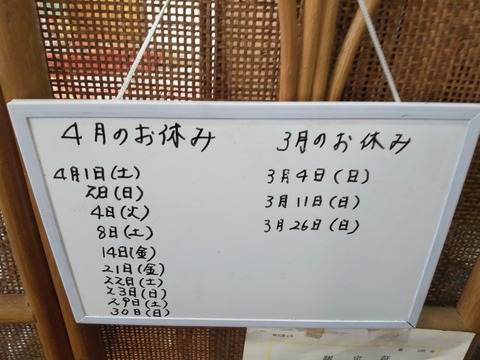 4月のお休み
4月1日(土)
2日(日)
4日(火)
8日(土)
14日(金)
21日(金)
22日(土)
23日(日)
29日(土)
30日(日)
3月のお休み
3月4日(日)
3月11日(日)
3月26日(日)
認定証